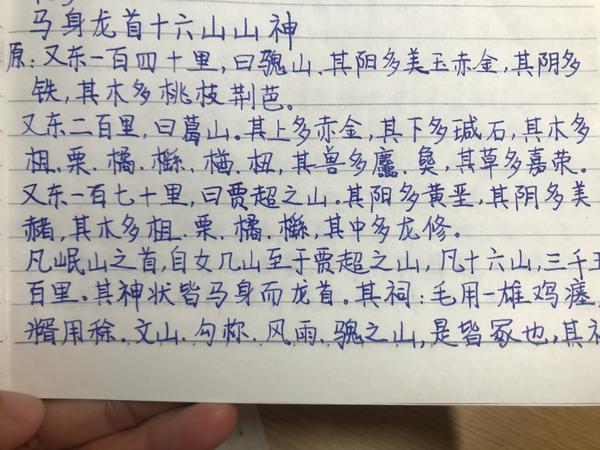 马身龙首十六山山神
原:又东一百四十里,曰騩山.其阳多美玉赤金,其阴多
铁,其木多桃枝荆芭。
又东二百里,曰葛山。其上多赤金,其下多瑊石,其木多
柤.栗.橘.櫾.楢.杻,其兽多麢.㚟,其草多嘉荣。
又东一百七十里,曰贾超之山。其阳多黄垩,其阴多美
赭,其木多柤.栗.橘.櫾,其中多龙修。
凡岷山之首,自女几山至于贾超之山,凡十六山,三千五
百里。其神状皆马身而龙首。其祠:毛用一雄鸡瘗,
糈用稌.文山.勾檷.风雨.騩之山,是皆冢也,其